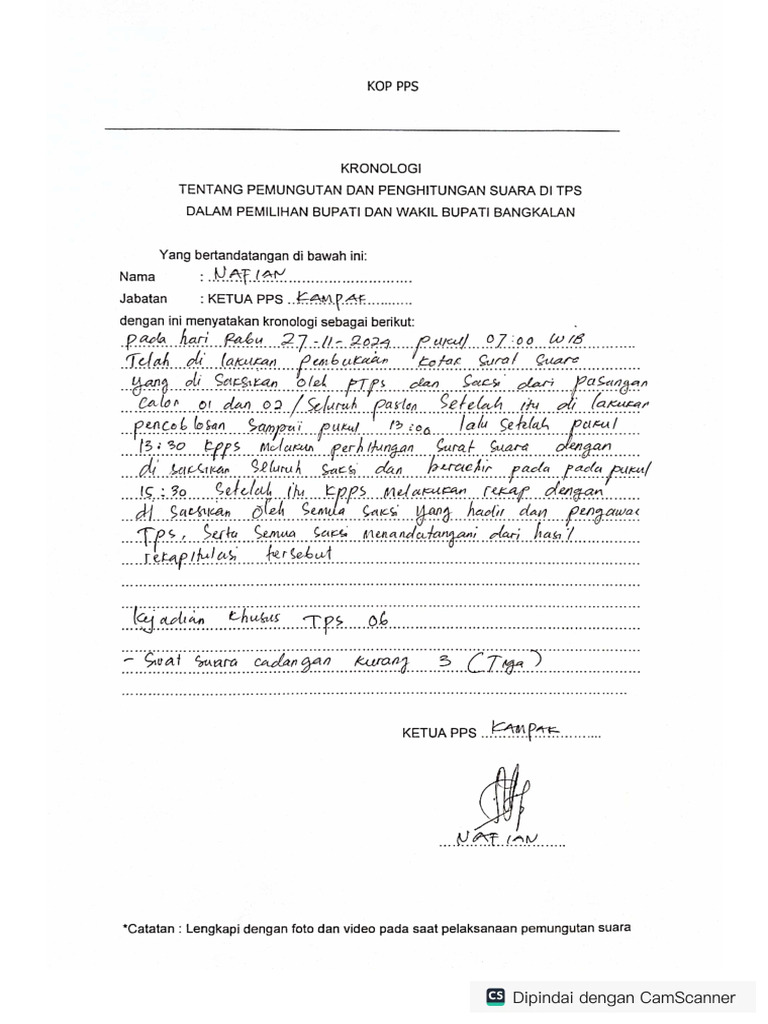 KOP PPS
KRONOLOGI
TENTANG PEMUNGUTAN DAN PENGHITUNGAN SUARA DI TPS
DALAM PEMILIHAN BUPATI DAN WAKIL BUPATI BANGKALAN
Yang bertandatangan di bawah ini:
Nama : NAFIAN
Jabatan : KETUA PPS KAMPAK
dengan ini menyatakan kronologi sebagai berikut:
pada hari Rabu 27-11-2024 pukul 07:00 WIB
Telah di lakukan pembukaan kotak Surat Suara
yang di Saksikan oleh PTPS dan Saksi dari pasangan
Calon 01 dan 02 / Seluruh paslon Setelah itu di lakukan
pencoblosan Sampai pukul 13:00 lalu setelah pukul
13:30 KPPS melakun perhitungan Surat Suara dengan
di saksikan Seluruh saksi dan berachir pada pada pukul
15:30 Setelah itu KPPS melakukan rekap dengan
di saksikan oleh Semua saksi yang hadir dan pengawas
TPS, Serta Semua saksi menandatangani dari hasil
rekapitulasi tersebut
Kejadian Khusus TPS 06
- Surat suara cadangan kurang 3 (Tiga)
KETUA PPS KAMPAK
NAFIAN
*Catatan : Lengkapi dengan foto dan video pada saat pelaksanaan pemungutan suara
CS Dipindai dengan CamScanner